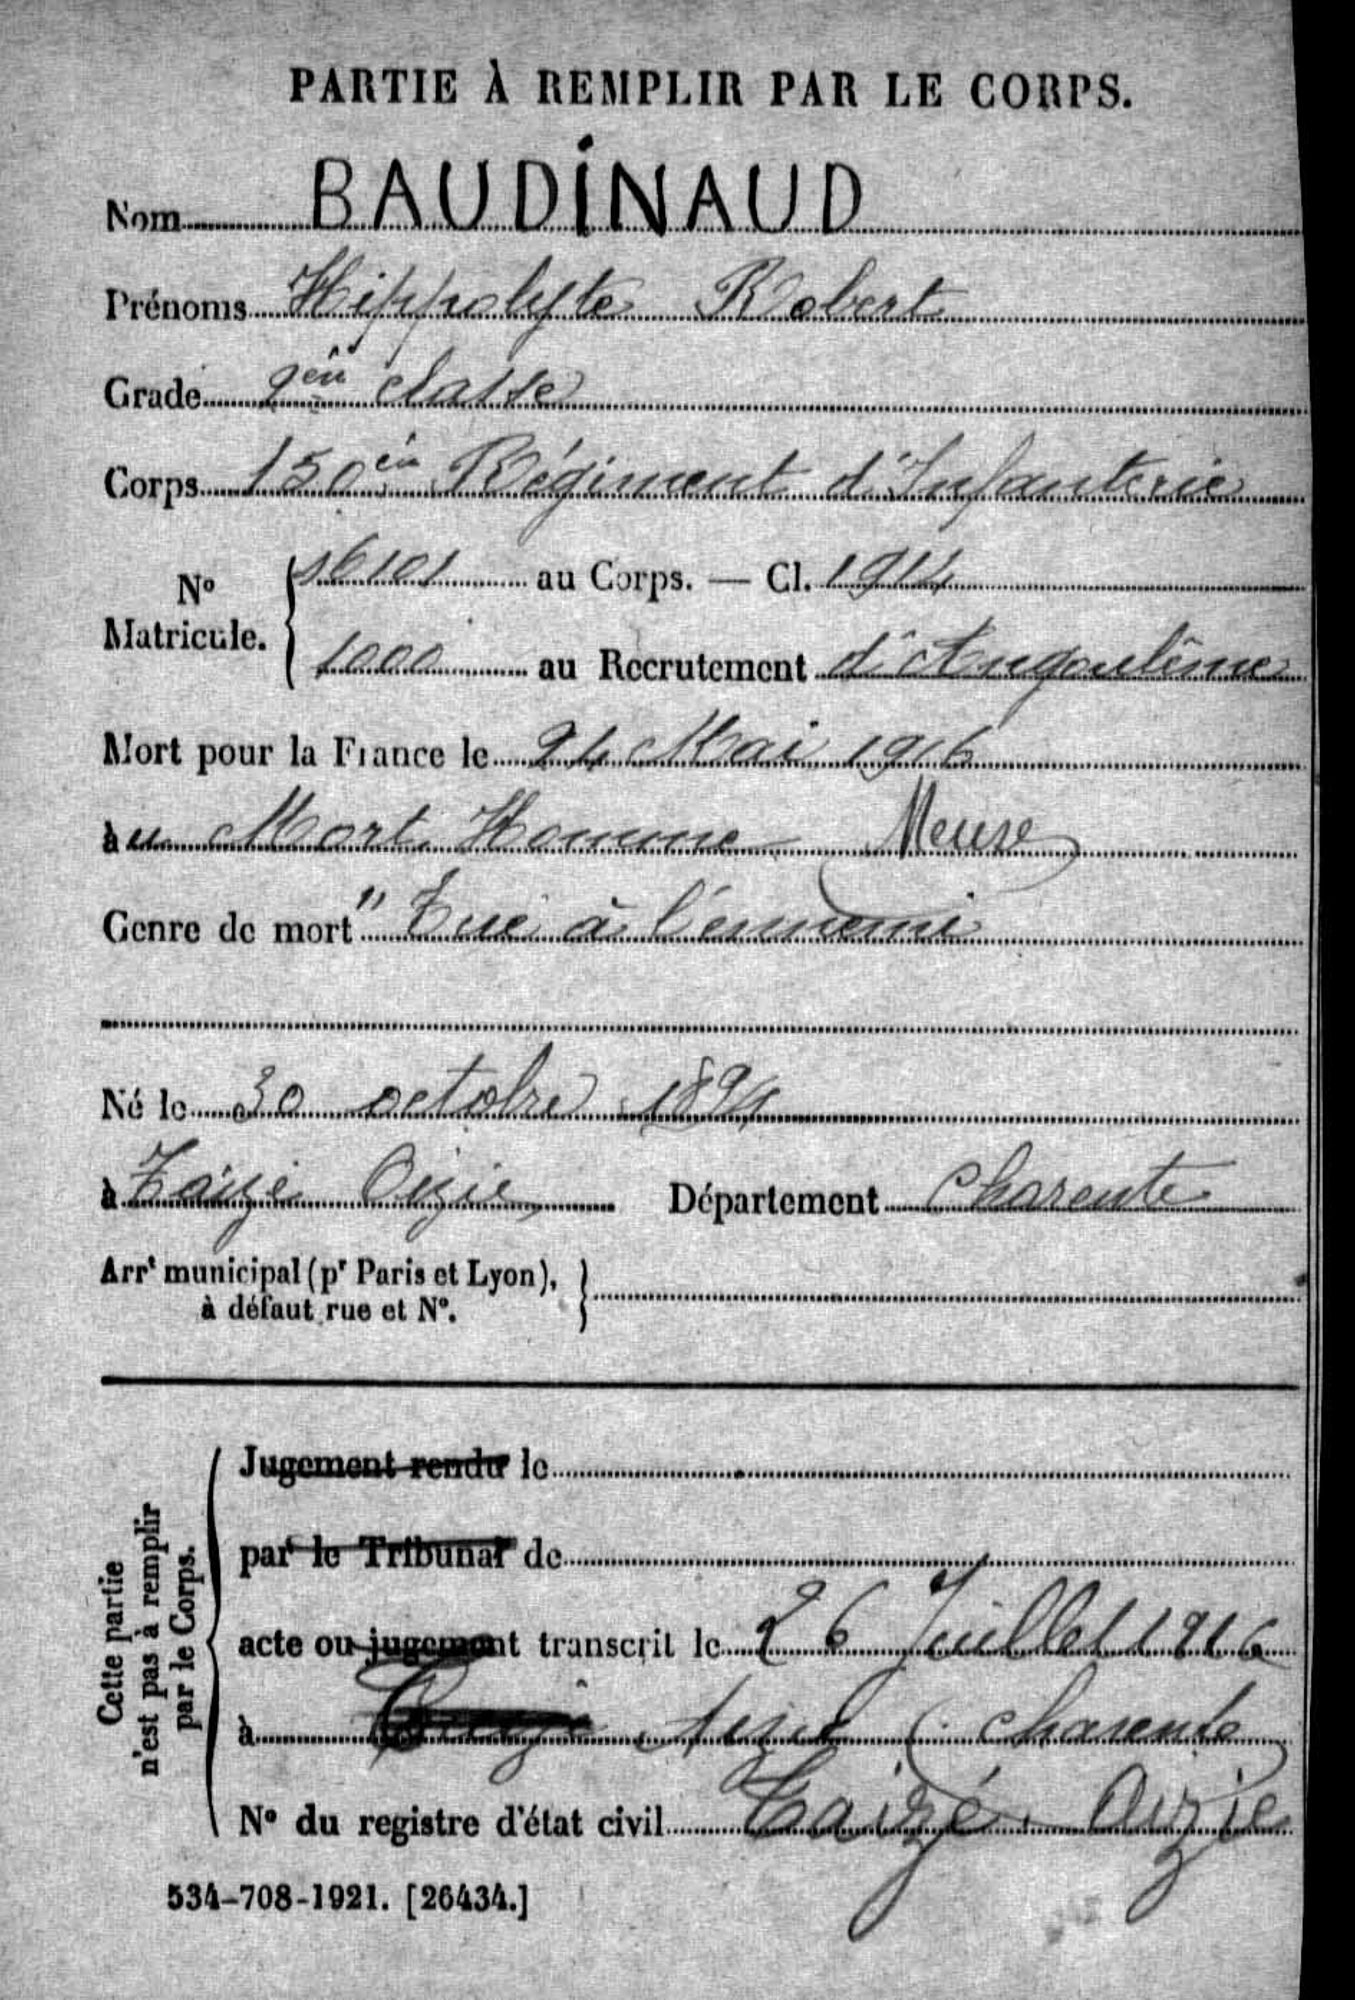 PARTIE À REMPLIR PAR LE CORPS.
Nom BAUDINAUD
Prénoms Hippolyte Robert
Grade 2em classe
Corps 150em Régiment d'Infanterie
No Matricule. { 16101 au Corps. — Cl. 1914
1000 au Recrutement d'Angoulême
Mort pour la France le 24 Mai 1916
au Mort Homme Meuse
Genre de mort "Tué à l'ennemi
Né le 30 octobre 1894
à Taizé Aizie Département Charente
Arrt municipal (pr Paris et Lyon),
à défaut rue et No.
Cette partie
n'est pas à remplir
par le Corps.
Jugement rendu le
par le Tribunal de
acte ou jugement transcrit le 26 Juillet 1916
à (Charente
No du registre d'état civil Taizé Aizie
534-708-1921. [26434.]